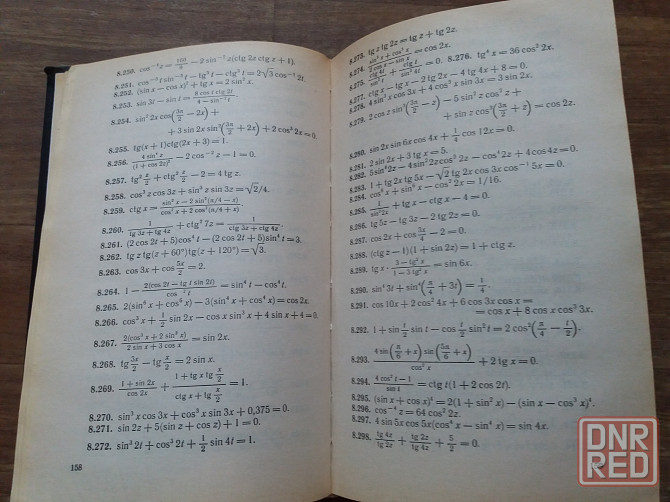 8.250. cos⁻⁴z = 160/9 − 2 sin⁻²z(ctg 2z ctg z + 1).
8.251. cos⁻³t sin⁻³t − tg³t − ctg³t = 2√3 cos⁻¹2t.
8.252. (sin x − cos x)² + tg x = 2 sin²x.
8.253. sin 3t − sin t =
8.254. sin³2x cos(3π/2 − 2x) +
+ 3 sin 2x sin²(3π/2 + 2x) + 2 cos³2x = 0.
8.255. tg(x + 1)ctg(2x + 3) = 1.
8.256. − 2 cos⁻²z − 1 = 0.
8.257. tg³ z/2 + ctg³ z/2 − 2 = 4 tg z.
8.258. cos³z cos 3z + sin³z sin 3z = √2/4.
8.259. ctg x =
8.260. 1/(tg 3z + tg 4z) + ctg²7z = 1/(ctg 3z + ctg 4z).
8.261. (2 cos 2t + 5)cos⁴t − (2 cos 2t + 5)sin⁴t = 3.
8.262. tg z tg(z + 60°)tg(z + 120°) = √3.
8.263. cos 3x + cos 5x/2 = 2.
8.264. = sin⁴t − cos⁴t.
8.265. 2(sin⁶x + cos⁶x) − 3(sin⁴x + cos⁴x) = cos 2x.
8.266. cos²x + 1/2 sin 2x − cos x sin³x + 4 sin x + 4 = 0.
8.267. = sin 2x.
8.268. tg 3x/2 − tg x/2 = 2 sin x.
8.269. (1 + sin 2x)/cos 2x + (1 + tg x tg x/2)/(ctg x + tg x/2) = 1.
8.270. sin³x cos 3x + cos³x sin 3x + 0,375 = 0.
8.271. sin 2z + 5(sin z + cos z) + 1 = 0.
8.272. sin³2t + cos³2t + 1/2 sin 4t = 1.
158
8.273. tg z tg 2z = tg z + tg 2z.
8.274. = cos 2x.
8.275. = 0. 8.276. tg⁴x = 36 cos²2x.
8.277. ctg x − tg x − 2 tg 2x − 4 tg 4x + 8 = 0.
8.278. 4 sin³x cos 3x + 4 cos³x sin 3x = 3 sin 2x.
8.279. 2 cos z sin³(3π/2 − z) − 5 sin²z cos²z +
+ sin z cos³(3π/2 + z) = cos 2z.
8.280. sin 2x sin 6x cos 4x + 1/4 cos 12x = 0.
8.281. 2 sin 2x + 3 tg x = 5.
8.282. 5 sin⁴2z − 4 sin²2z cos²2z − cos⁴2z + 4 cos 4z = 0.
8.283. 1 + tg 2x tg 5x − √2 tg 2x cos 3x cos⁻¹5x = 0.
8.284. cos⁶x + sin⁶x − cos²2x = 1/16.
8.285. + tg x − ctg x − 4 = 0.
8.286. tg 5z − tg 3z − 2 tg 2z = 0.
8.287. cos 2x + cos 3x/4 − 2 = 0.
8.288. (ctg z − 1)(1 + sin 2z) = 1 + ctg z.
8.289. tg x · (3 − tg²x)/(1 − 3 tg²x) = sin 6x.
8.290. sin⁴3t + sin⁴(π/4 + 3t) = 1/4.
8.291. cos 10x + 2 cos²4x + 6 cos 3x cos x =
= cos x + 8 cos x cos³3x.
8.292. 1 + sin t/2 sin t − cos t/2 sin²t = 2 cos²(π/4 − t/2).
8.293. 4 sin(π/6 + x) sin(5π/6 + x)/cos²x + 2 tg x = 0.
8.294. = ctg t(1 + 2 cos 2t).
8.295. (sin x + cos x)⁴ = 2(1 + sin²x) − (sin x − cos³x)⁴.
8.296. cos⁻⁴z = 64 cos²2z.
8.297. 4 sin 5x cos 5x(cos⁴x − sin⁴x) = sin 4x.
8.298. tg 4z/tg 2z + tg 2z/tg 4z + 5/2 = 0.
DNR
RED